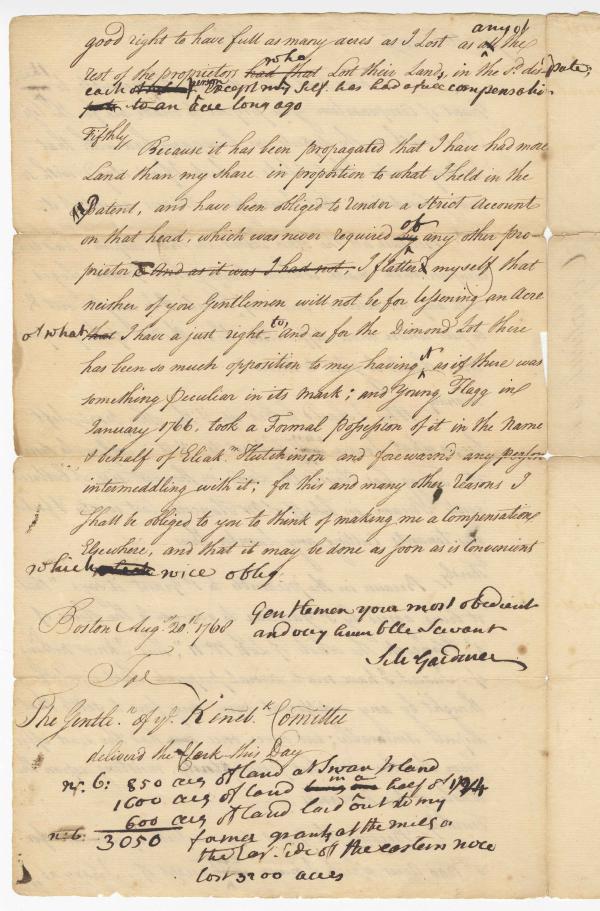 good right to have full as many acres as I Lost as any of the
rest of the proprietors who Lost their Land, in the Sd. dispute,
each person Except my self has had a free compensation
to an acre long ago
Fifthly
Because it has been propagated that I have had more
Land than my share in proportion to what I held in the
Patent, and have been obliged to render a Strict Account
on that head, which was never required by of any other pro-
prietor & And as it was I had not, I flatter myself that
neither of you Gentlemen will not be for lessening an Acre
of what that I have a just right to, And as for the Dimond Lot there
has been so much opposition to my having it, as if there was
something Peculiar in its mark; and Young Flagg in
January 1766, took a Formal Possession of it in the Name
& behalf of Eliak.m Hutchinson and forewarn'd any person
intermeddling with it; for this and many other reasons I
Shall be obliged to you to think of making me a Compensation
Elsewhere, and that it may be done as soon as is Convenient
which oblig
Boston Aug. 20th 1768
Gentlemen your most obedient
and very humble Servant
Silv Gardiner
To
The Gentle.n of ye. Kineb.k Comittee
deliverd the Clerk this Day
no: 6: 850 acrs of land at Swan Island
1600 acrs of land in a half of
600 acrs of land laid out to my
no: 6. 3050 former grants at the mills
the Eastern
lost 3200 acres